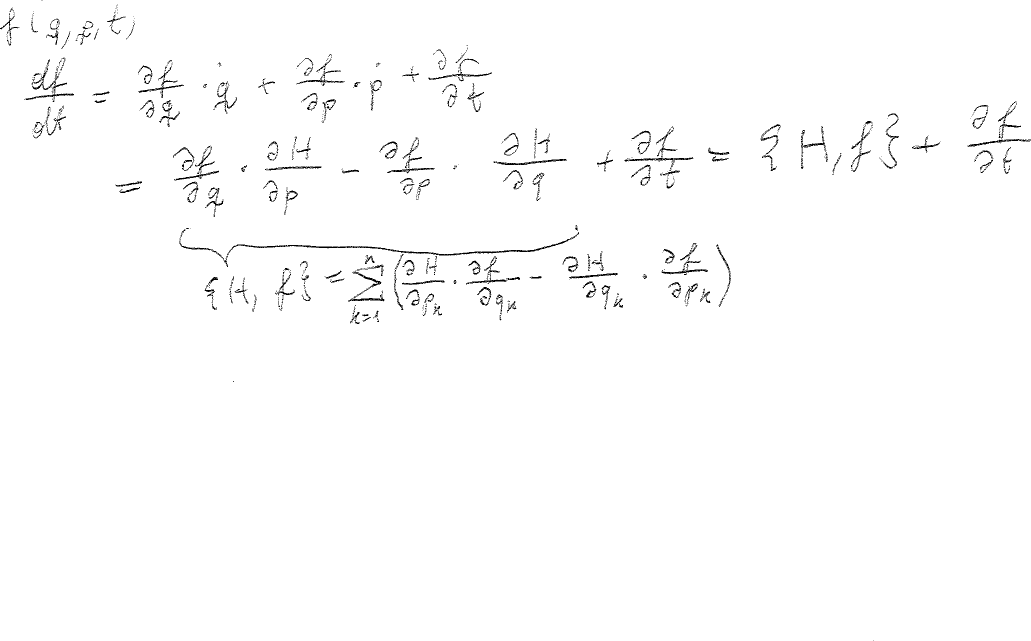 f(q,p,t)
df/dt = ∂f/∂q · q̇ + ∂f/∂p · ṗ + ∂f/∂t
= ∂f/∂q · ∂H/∂p − ∂f/∂p · ∂H/∂q + ∂f/∂t = {H,f} + ∂f/∂t
{H, f} = ∑ₖ₌₁ⁿ (∂H/∂pₖ · ∂f/∂qₖ − ∂H/∂qₖ · ∂f/∂pₖ)